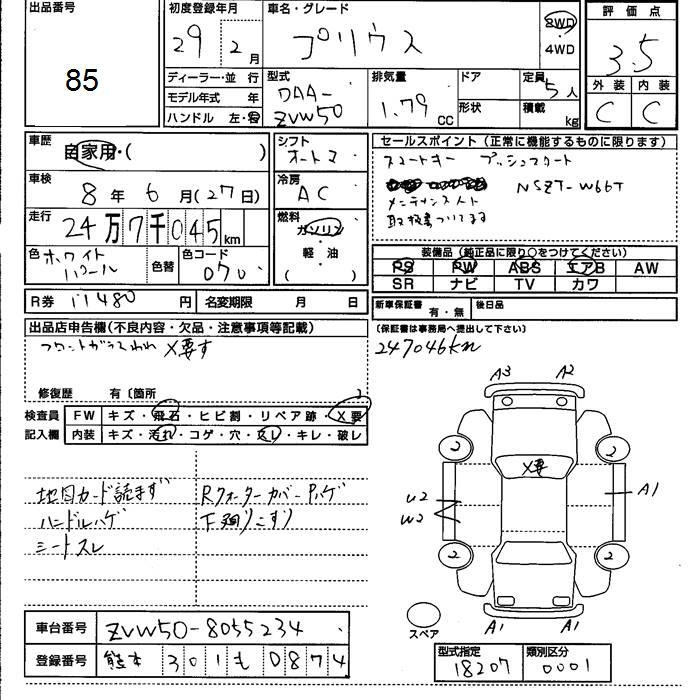 出品番号
85
初度登録年月
29年2月
車名・グレード
プリウス
2WD
・
4WD
評価点
3.5
外装 内装
C C
ディーラー・並 行
モデル年式 年
ハンドル 左・右
型式
DAA-
ZVW50
排気量
1.79 CC
ドア
形状
定員
5人
積載
kg
車歴
自家用・( )
車検
8年6月(27日)
走行
24万7千045km
色 ホワイト
パール
色替
色コード
070
シフト
オートマ
冷房
AC
燃料
ガソリン
・
軽・油
( )
セールスポイント(正常に機能するものに限ります)
スマートキー プッシュスタート
NSZT-W66T
メンテナンスノート
取扱書ついてます
装備品(純正品に限り○をつけてください)
PS PW ABS エアB AW
SR ナビ TV カワ
R券 11480円
名変期限 月 日
新車保証書 有・無
後日品
(保証書は事務局へ提出して下さい)
247046km
出品店申告欄(不良内容・欠品・注意事項等記載)
フロントガラスわれ X要す
修復歴 有〔箇所 〕
検査員
記入欄
FW キズ・飛石・ヒビ割・リペア跡・X要
内装 キズ・汚れ・コゲ・穴・スレ・キレ・破レ
地図カード読まず
ハンドルハゲ
シートスレ
Rクォーターカバーハゲ
下廻りこすり
A3 A2
2 2
X要
U2
W2
A1
2 2
A1 A1
スペア
車台番号 ZVW50-8055234
登録番号 熊本 301 も 0874
型式指定 類別区分
18207 0001